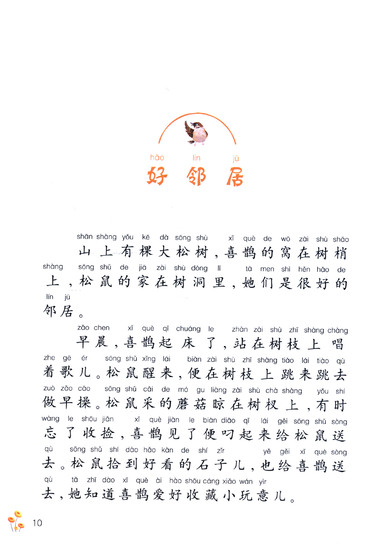 hǎo lín jū
好邻居
shān shàng yǒu kē dà sōng shù xǐ què de wō zài shù shāo
山上有棵大松树，喜鹊的窝在树梢
shàng sōng shǔ de jiā zài shù dòng lǐ tā men shì hěn hǎo de
上，松鼠的家在树洞里，她们是很好的
lín jū
邻居。
zǎo chen xǐ què qǐ chuáng le zhàn zài shù zhī shàng chàng
早晨，喜鹊起床了，站在树枝上唱
zhe gē ér sōng shǔ xǐng lái biàn zài shù zhī shàng tiào lái tiào qù
着歌儿。松鼠醒来，便在树枝上跳来跳去
zuò zǎo cāo sōng shǔ cǎi de mó gu liàng zài shù chà shàng yǒu shí
做早操。松鼠采的蘑菇晾在树杈上，有时
wàng le shōu jiǎn xǐ què jiàn le biàn diāo qǐ lái gěi sōng shǔ sòng
忘了收捡，喜鹊见了便叼起来给松鼠送
qù sōng shǔ shí dào hǎo kàn de shí zǐr yě gěi xǐ què sòng
去。松鼠拾到好看的石子儿，也给喜鹊送
qù tā zhī dào xǐ què ài hào shōu cáng xiǎo wán yìr
去，她知道喜鹊爱好收藏小玩意儿。
10